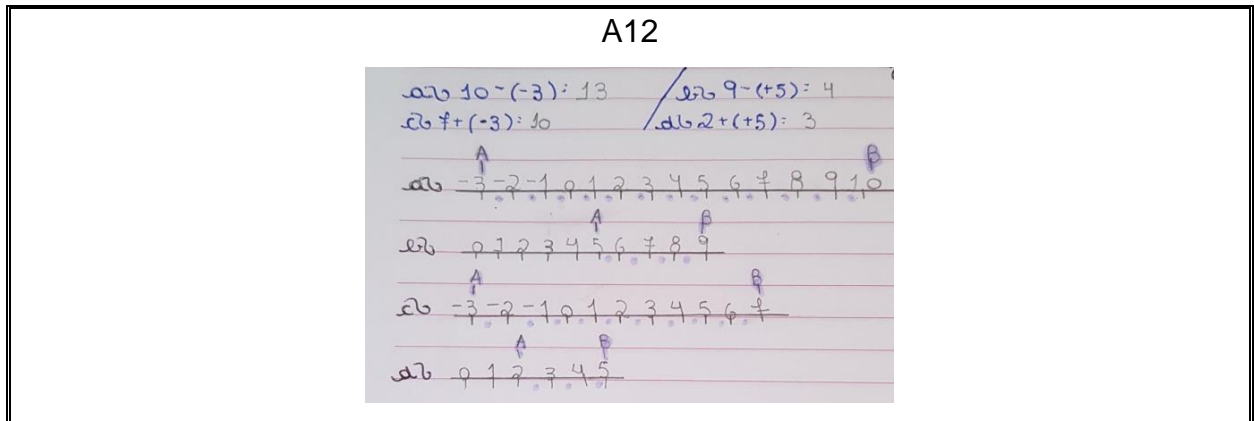 A12
a) 10-(-3): 13 / b) 9-(+5): 4
c) 7+(-3): 10 / d) 2+(+5): 3
A B
a) -3 -2 -1 0 1 2 3 4 5 6 7 8 9 10
A B
b) 0 1 2 3 4 5 6 7 8 9
A B
c) -3 -2 -1 0 1 2 3 4 5 6 7
A B
d) 0 1 2 3 4 5